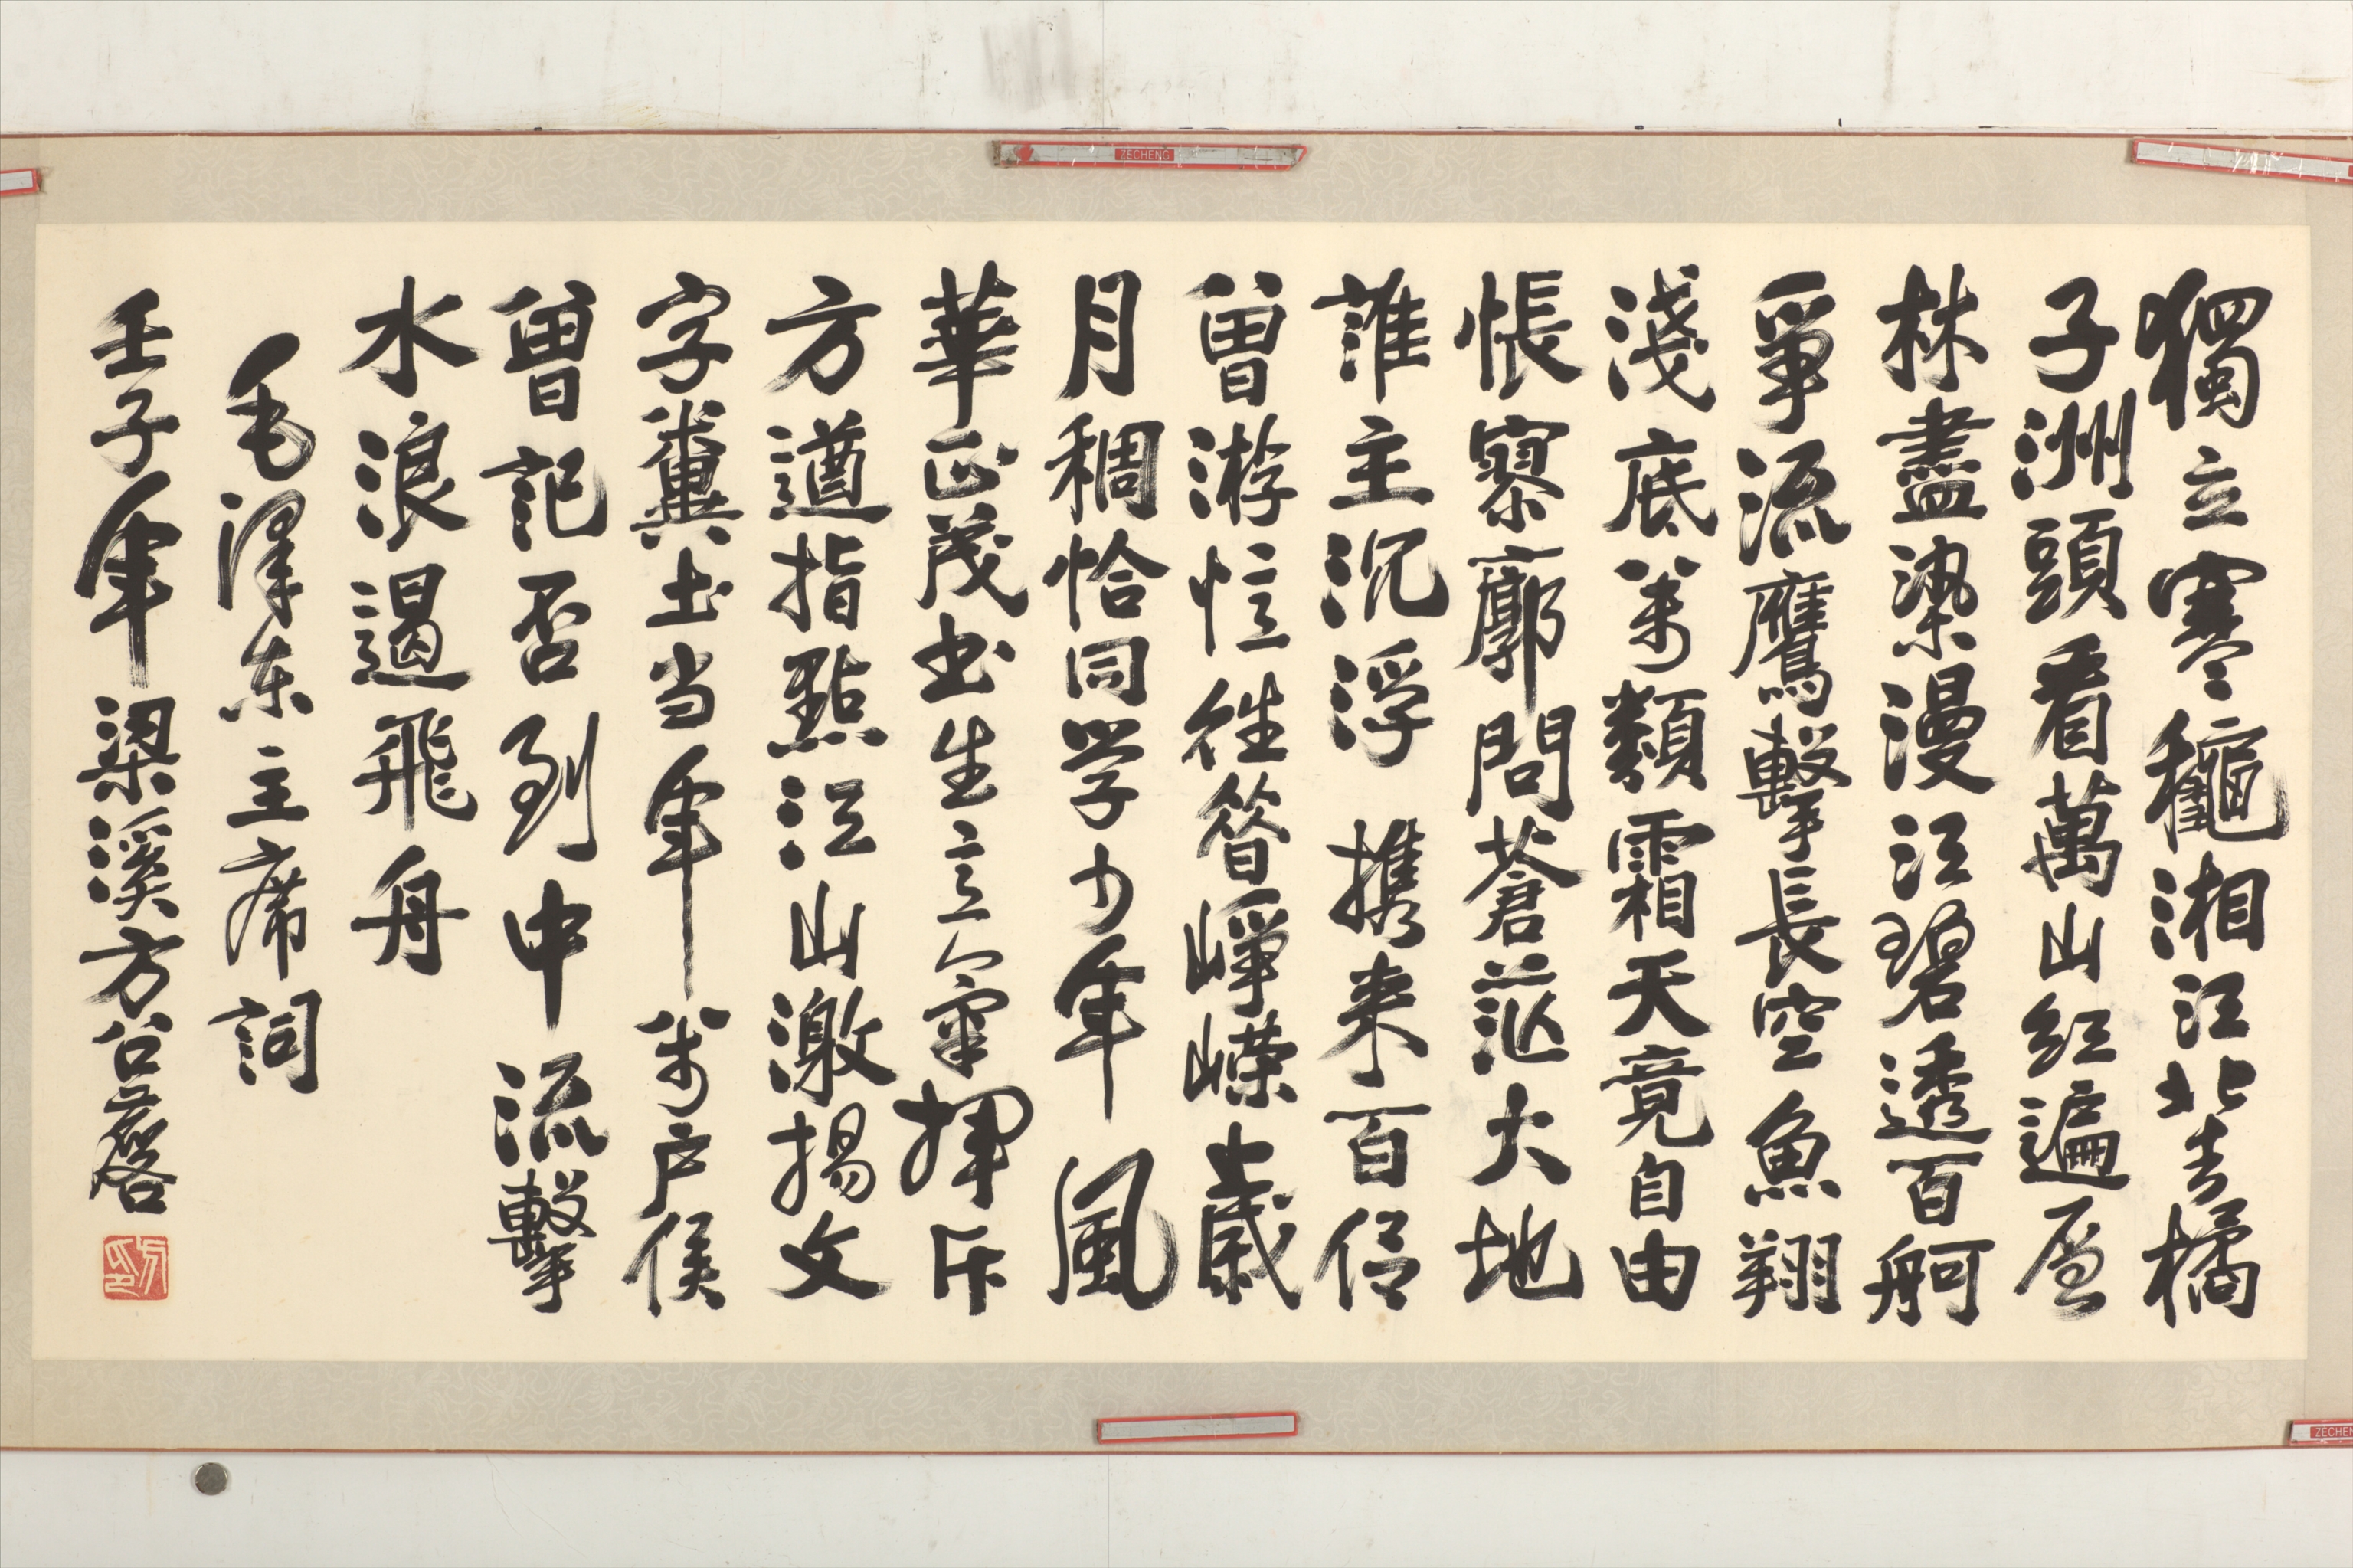 獨立寒龝湘江北去橘
子洲頭看萬山红遍層
林盡染漫江碧透百舸
爭流鷹擊長空魚翔
淺底萬類霜天竟自由
悵寥廓問蒼茫大地
誰主沉浮携来百侣
曾游憶往昔崢嶸歲
月稠恰同学少年風
華正茂书生意氣揮斥
方遒指點江山激揚文
字糞土当年萬户侯
曾記否到中流擊
水浪遏飛舟
毛泽东主席詞
壬子年梁溪方召麐
ZECHENG